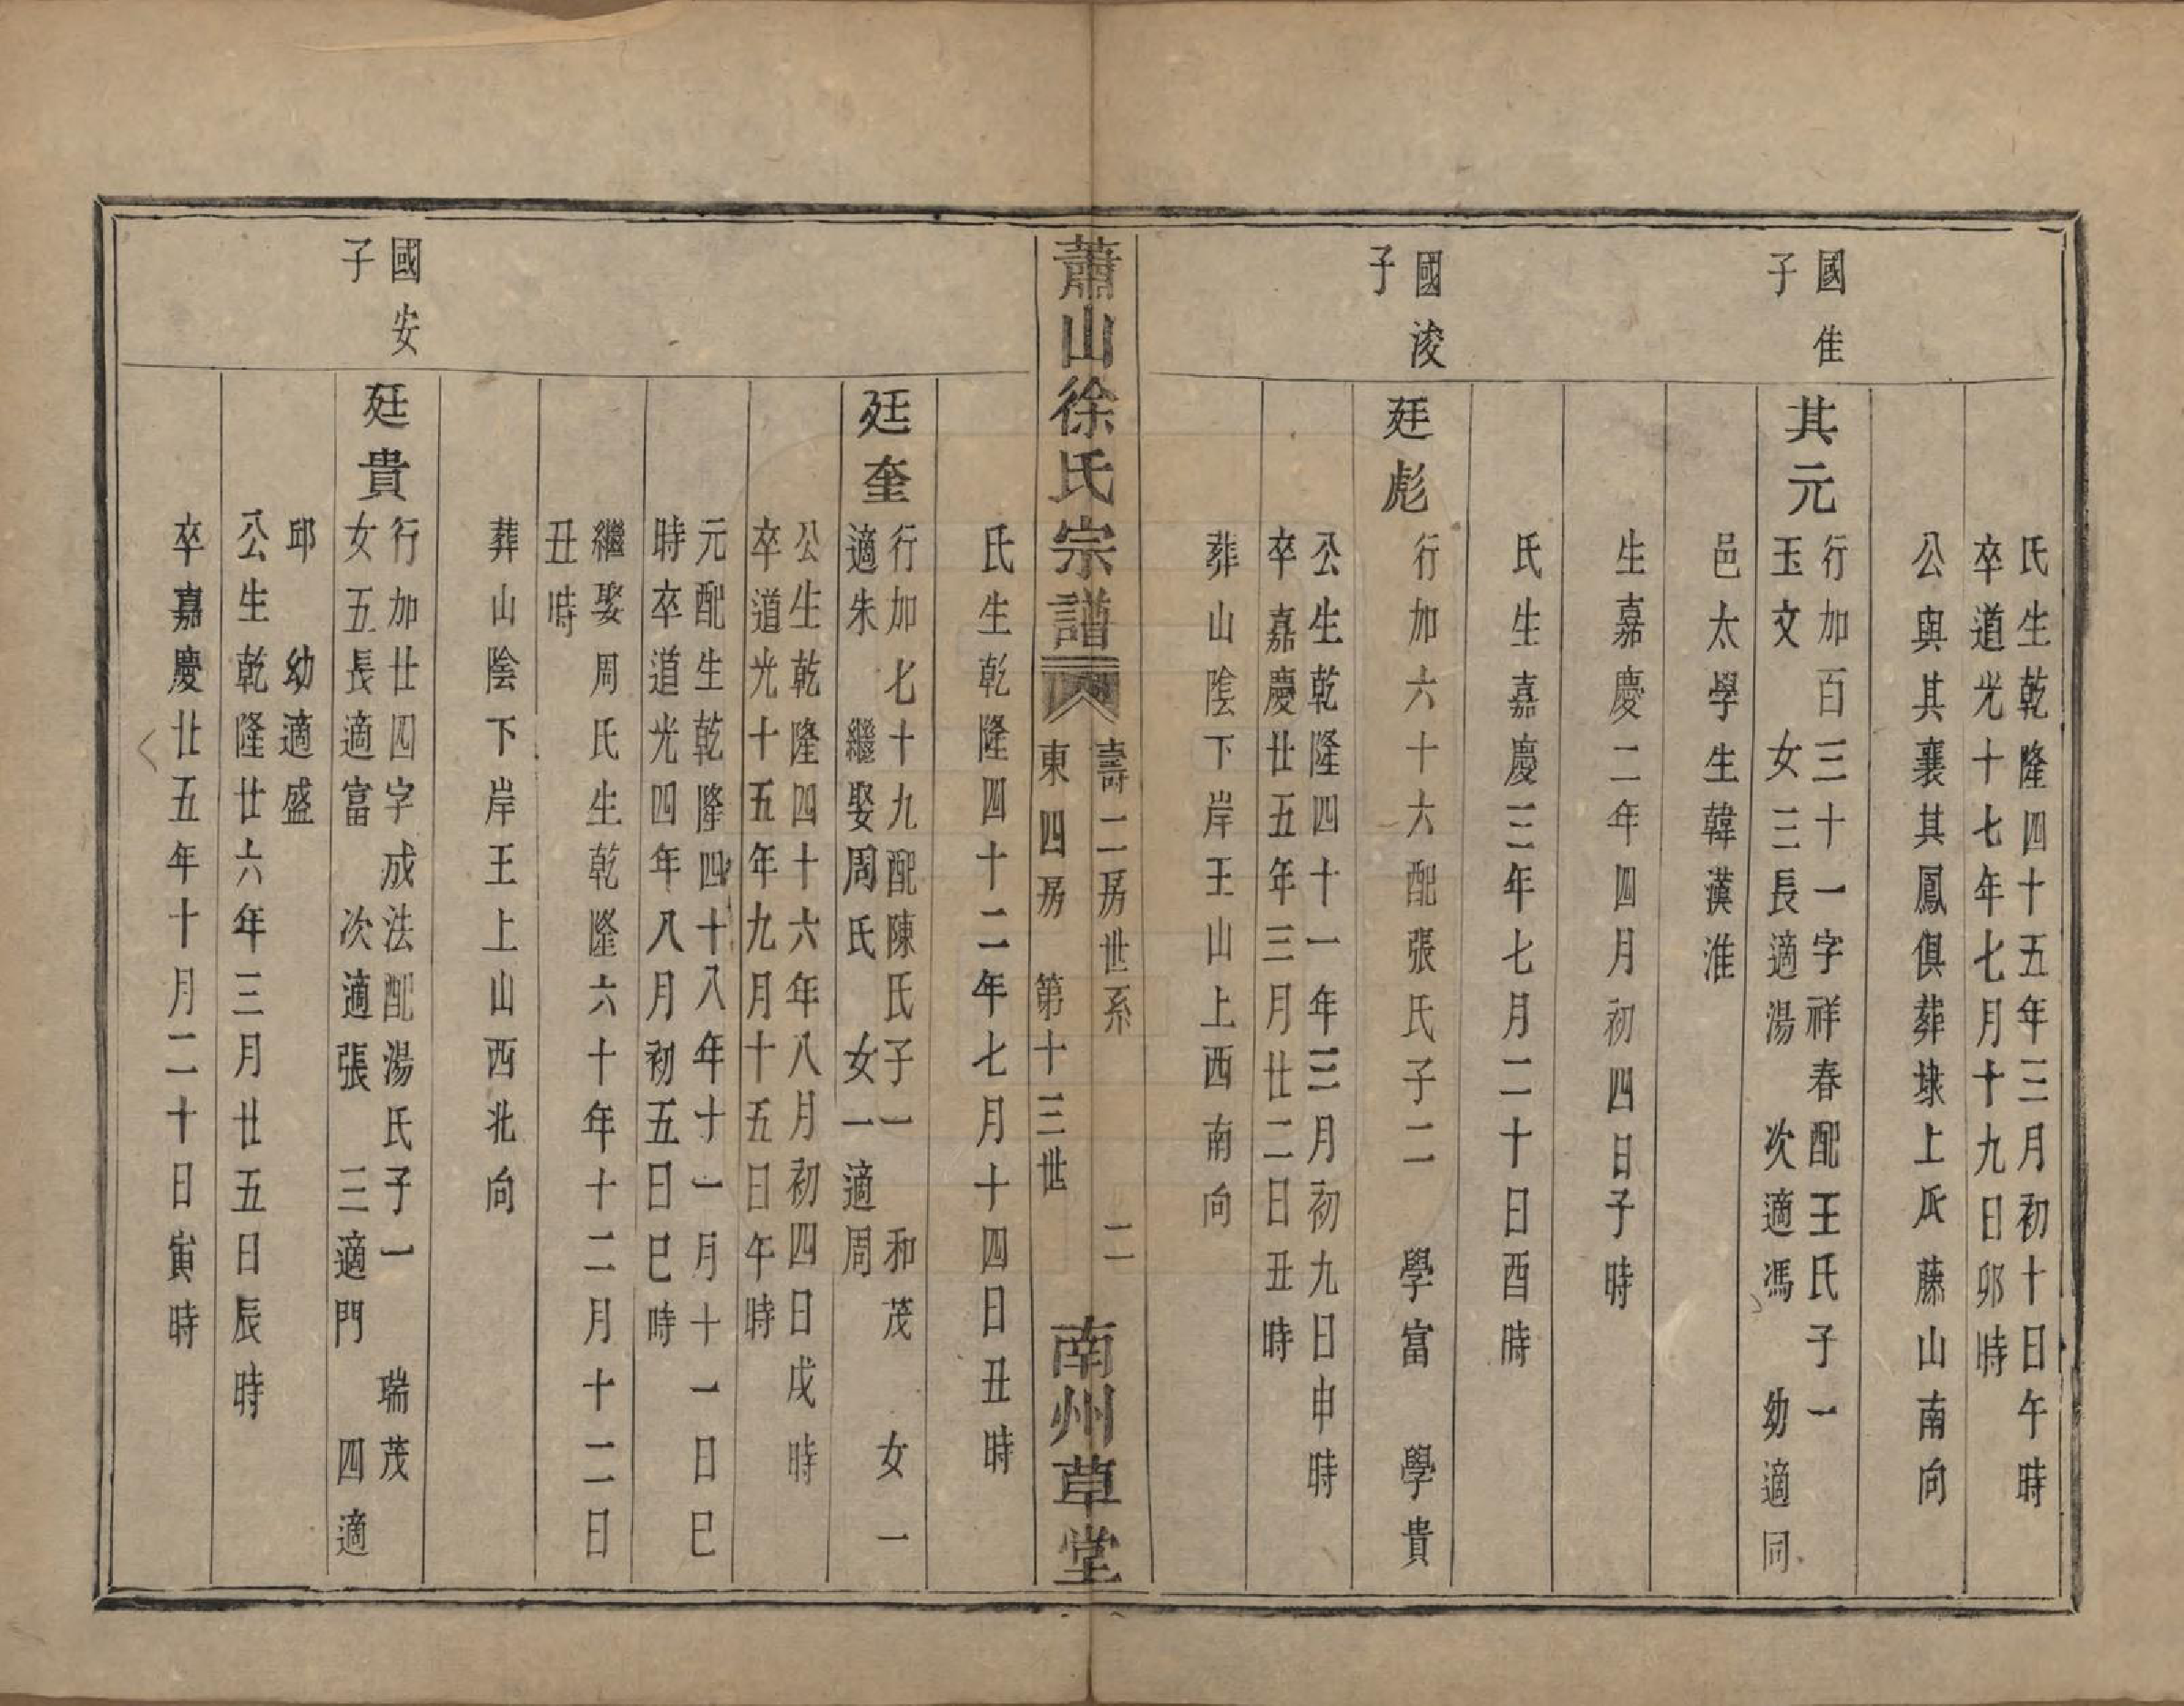 氏生乾隆四十五年三月初十日午時
卒道光十七年七月十九日卯時
公與其襄其鳳俱葬埭上爪藤山南向
國佳
子
其元
行加百三十一字祥春配王氏子一
玉文 女三長適湯 次適馮 幼適同
邑太學生韓漢淮
生嘉慶二年四月初四日子時
氏生嘉慶三年七月二十日酉時
國浚
子
廷彪
行加六十六配張氏子二 學富 學貴
公生乾隆四十一年三月初九日申時
卒嘉慶廿五年三月廿二日丑時
葬山陰下岸王山上西南向
蕭山徐氏宗譜
壽二房世系 二
東四房 第十三世
南州草堂
氏生乾隆四十二年七月十四日丑時
廷奎
行加七十九配陳氏子一 和茂 女一
適朱 繼娶周氏 女一適周
公生乾隆四十六年八月初四日戌時
卒道光十五年九月十五日午時
元配生乾隆四十八年十一月十一日巳
時卒道光四年八月初五日巳時
繼娶周氏生乾隆六十年十二月十二日
丑時
葬山陰下岸王上山西北向
國安
子
廷貴
行加廿四字成法配湯氏子一 瑞茂
女五長適富 次適張 三適門 四適
邱 幼適盛
公生乾隆廿六年三月廿五日辰時
卒嘉慶廿五年十月二十日寅時